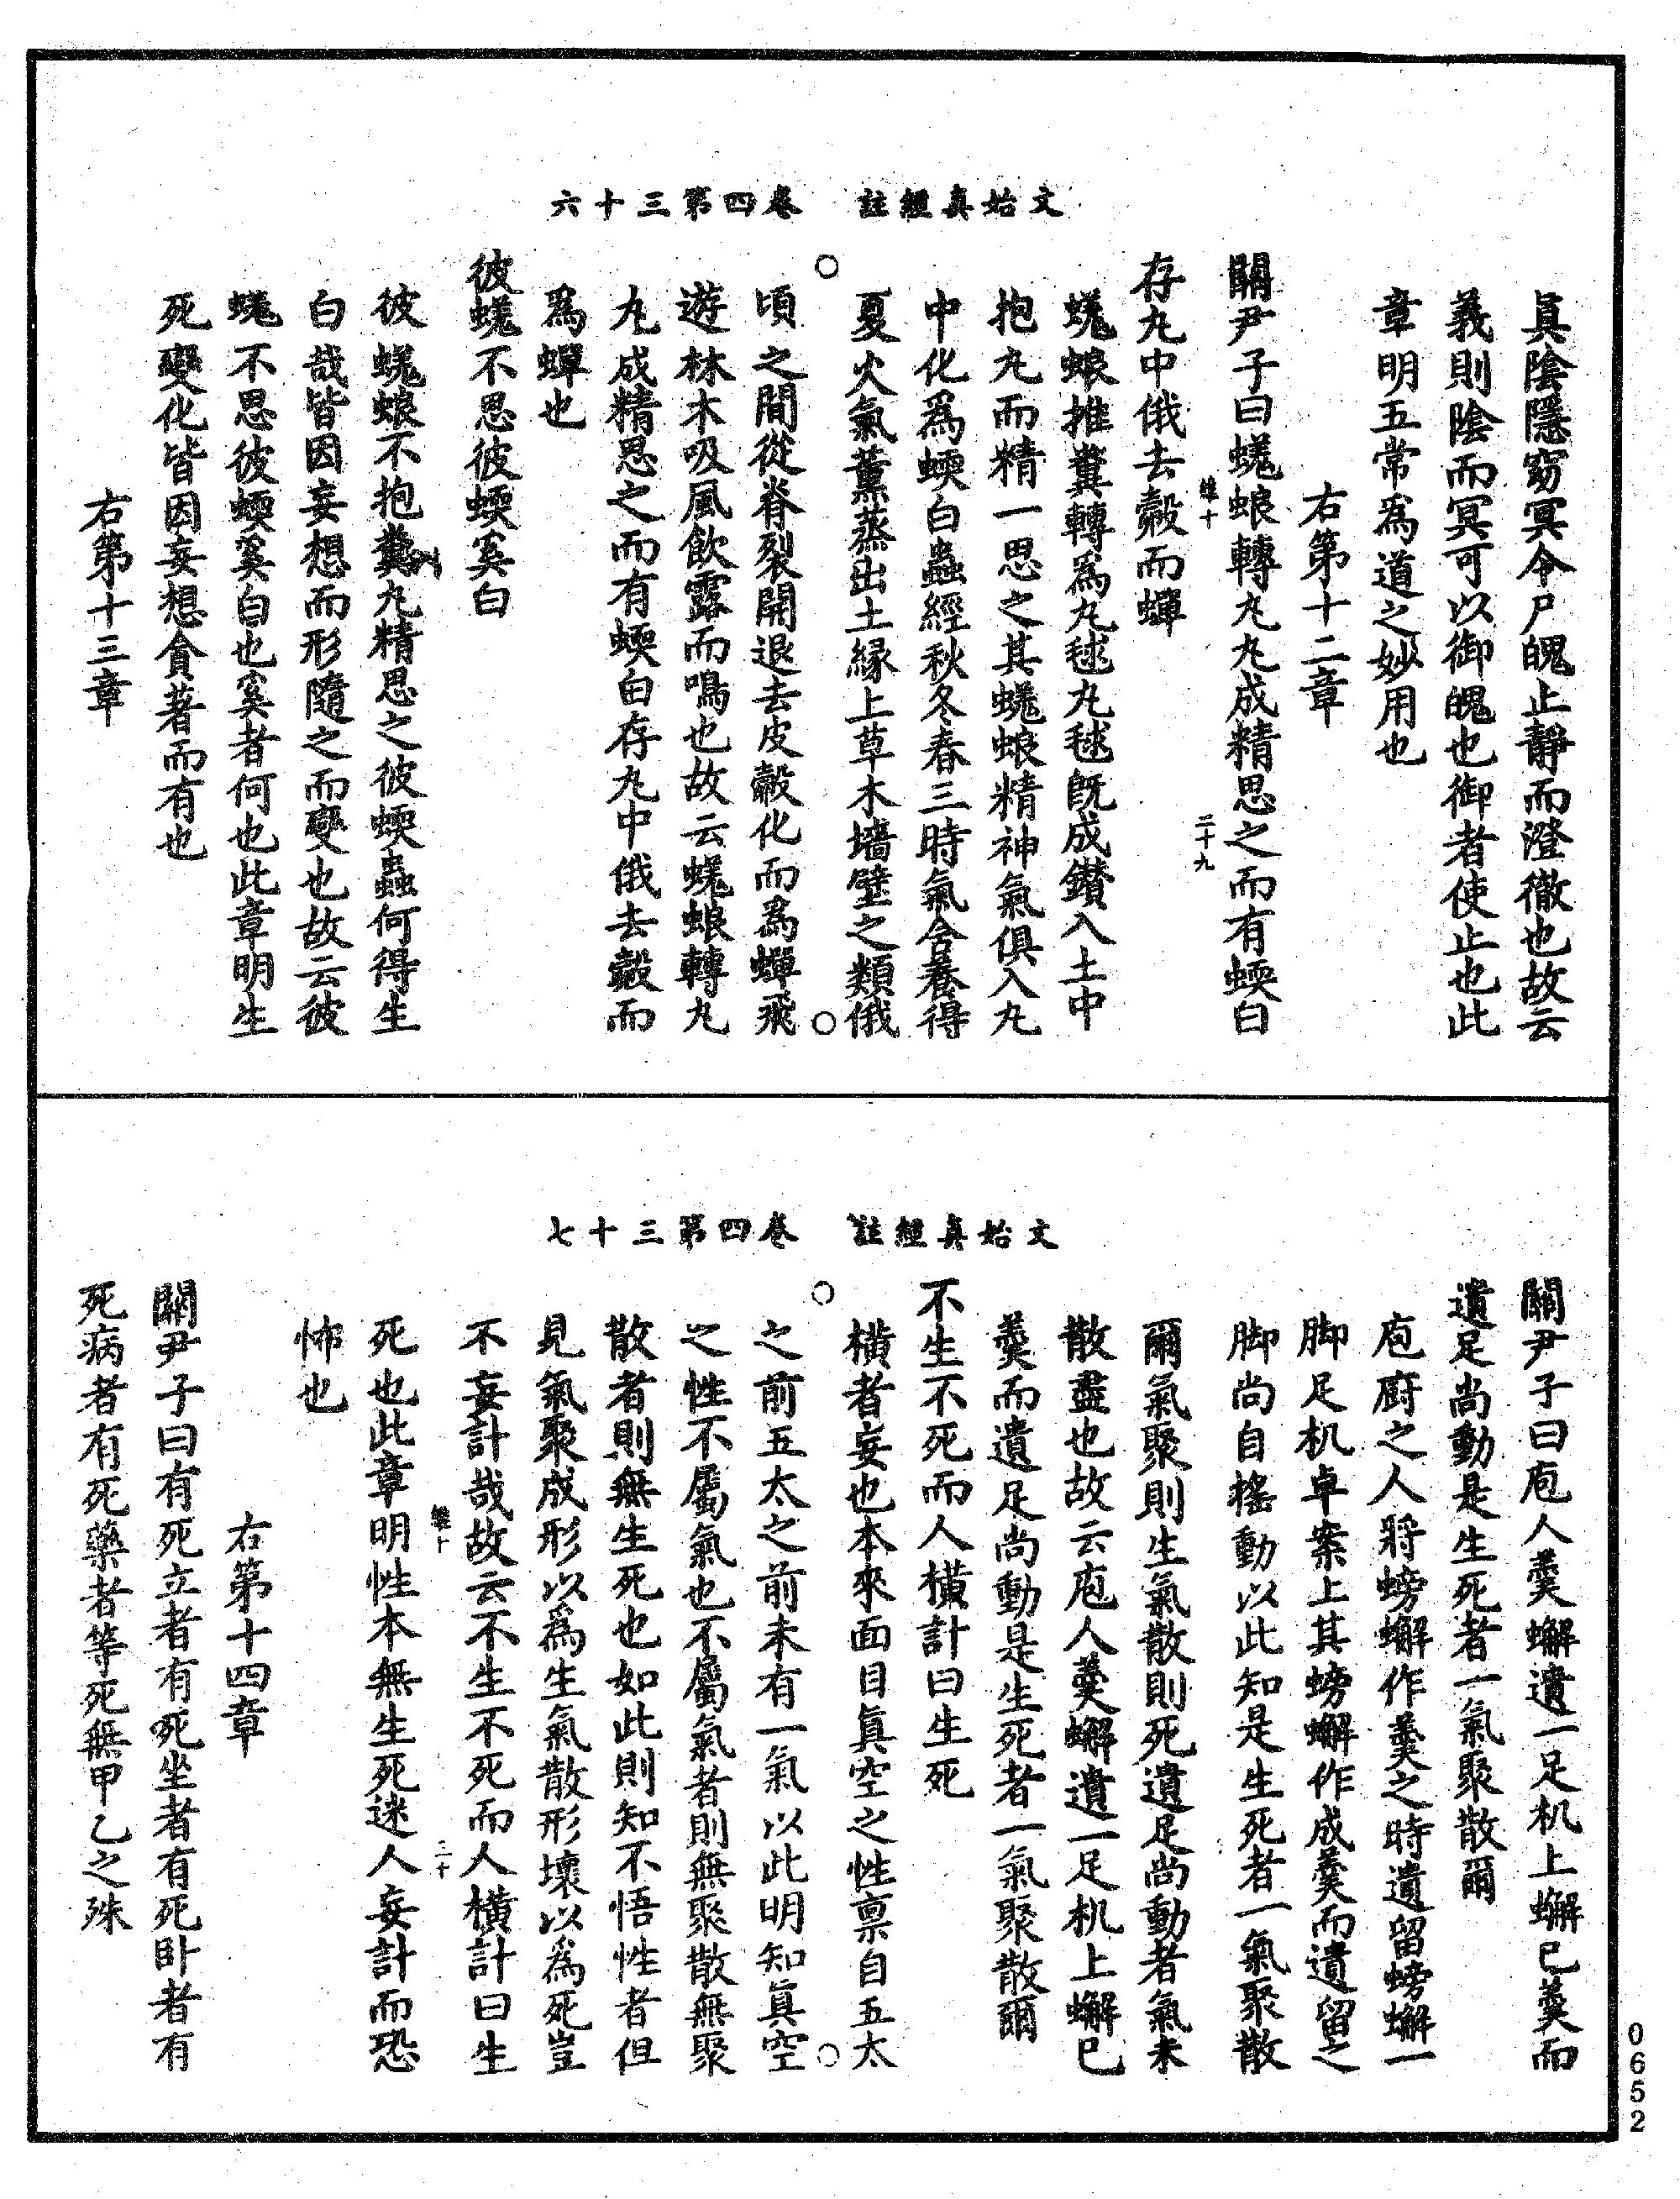 文始真經註　卷四第三十六
真陰隱窈冥令尸魄止靜而澄徹也故云
義則陰而冥可以御魄也御者使止也此
章明五常爲道之妙用也
右第十二章
關尹子曰蜣蜋轉丸丸成精思之而有蝡白
二十九
存丸中俄去殼而蟬
蜣蜋推糞轉爲丸毬丸毬既成鑽入土中
抱丸而精一思之其蜣蜋精神氣俱入丸
中化爲蝡白蟲經秋冬春三時氣含養得
夏火氣薰蒸出土緣上草木墻壁之類俄
頃之間從脊裂開退去皮殼化而爲蟬飛
遊林木吸風飲露而鳴也故云蜣蜋轉丸
丸成精思之而有蝡白存丸中俄去殼而
爲蟬也
彼蜣不思彼蝡奚白
彼蜣蜋不抱糞丸精思之彼蝡蟲何得生
白哉皆因妄想而形隨之而變也故云彼
蜣不思彼蝡奚白也奚者何也此章明生
死變化皆因妄想貪著而有也
右第十三章
文始真經註　卷四第三十七
關尹子曰庖人羹蠏遺一足机上蠏已羹而
遺足尚動是生死者一氣聚散爾
庖廚之人將螃蠏作羹之時遺留螃蠏一
脚足机卓案上其螃蠏作成羹而遺留之
脚尚自搖動以此知是生死者一氣聚散
爾氣聚則生氣散則死遺足尚動者氣未
散盡也故云庖人羹蠏遺一足机上蠏已
羹而遺足尚動是生死者一氣聚散爾
不生不死而人橫計曰生死
橫者妄也本來面目真空之性禀自五太
之前五太之前未有一氣以此明知真空
之性不屬氣也不屬氣者則無聚散無聚
散者則無生死也如此則知不悟性者但
見氣聚成形以爲生氣散形壞以為死豈
不妄計哉故云不生不死而人橫計曰生
三十
死也此章明性本無生死迷人妄計而恐
怖也
右第十四章
關尹子曰有死立者有死坐者有死卧者有
死病者有死藥者等死無甲乙之殊
0652